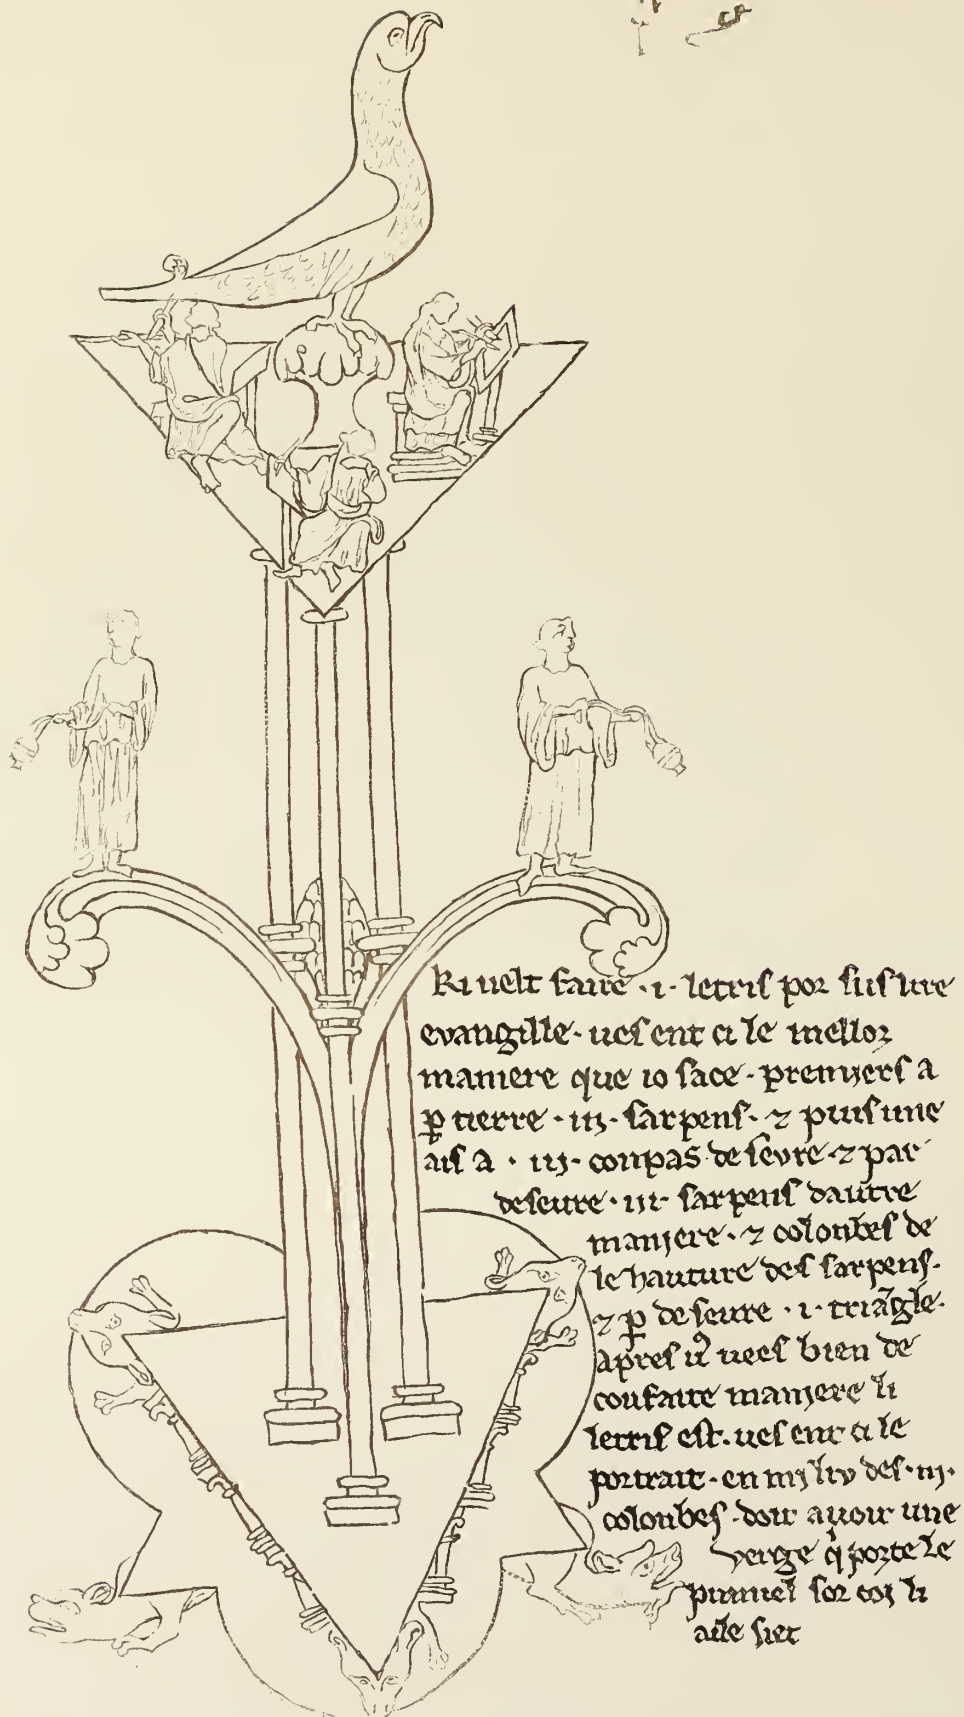 Ki velt faire ·i· letris por sus lire
evangille· ves ent ci le mellor
maniere que io sace· premiers a
p̱ tierre ·iij· sarpens· ⁊ puis une
ais a ·iij· conpas desevre ⁊ par
deseure ·iij· sarpens dautre
maniere· ⁊ colonbes de
le hauture des sarpens·
⁊ p̱ deseure ·i· triãgle·
apres vꝰ veés bien de
confaite maniere li
letris est· ves ent ci le
portrait· en mi liv des ·iij·
colonbes· doit avoir une
verge q̇ porte le
pumiel sor coi li
aile siet